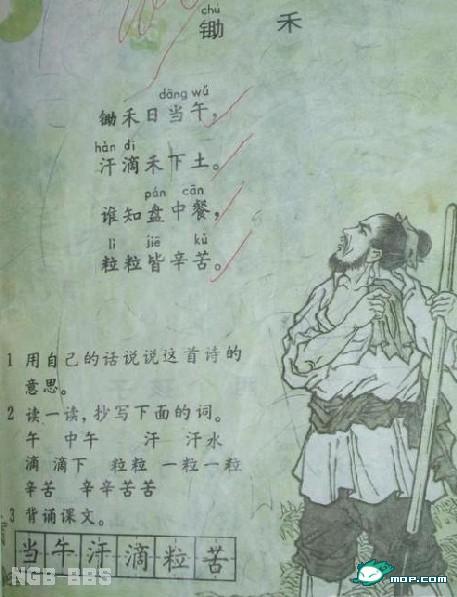 chú
锄 禾
dāng wǔ
锄禾日当午，
hàn dī
汗滴禾下土。
pán cān
谁知盘中餐，
lì jiē kǔ
粒粒皆辛苦。
1 用自己的话说说这首诗的
意思。
2 读一读，抄写下面的词。
午 中午 汗 汗水
滴 滴下 粒粒 一粒一粒
辛苦 辛辛苦苦
3 背诵课文。
当午汗滴粒苦
NGB-BBS
MOP.COM